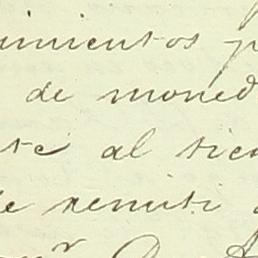 imientos p
de moned
te al tiem
le remiti